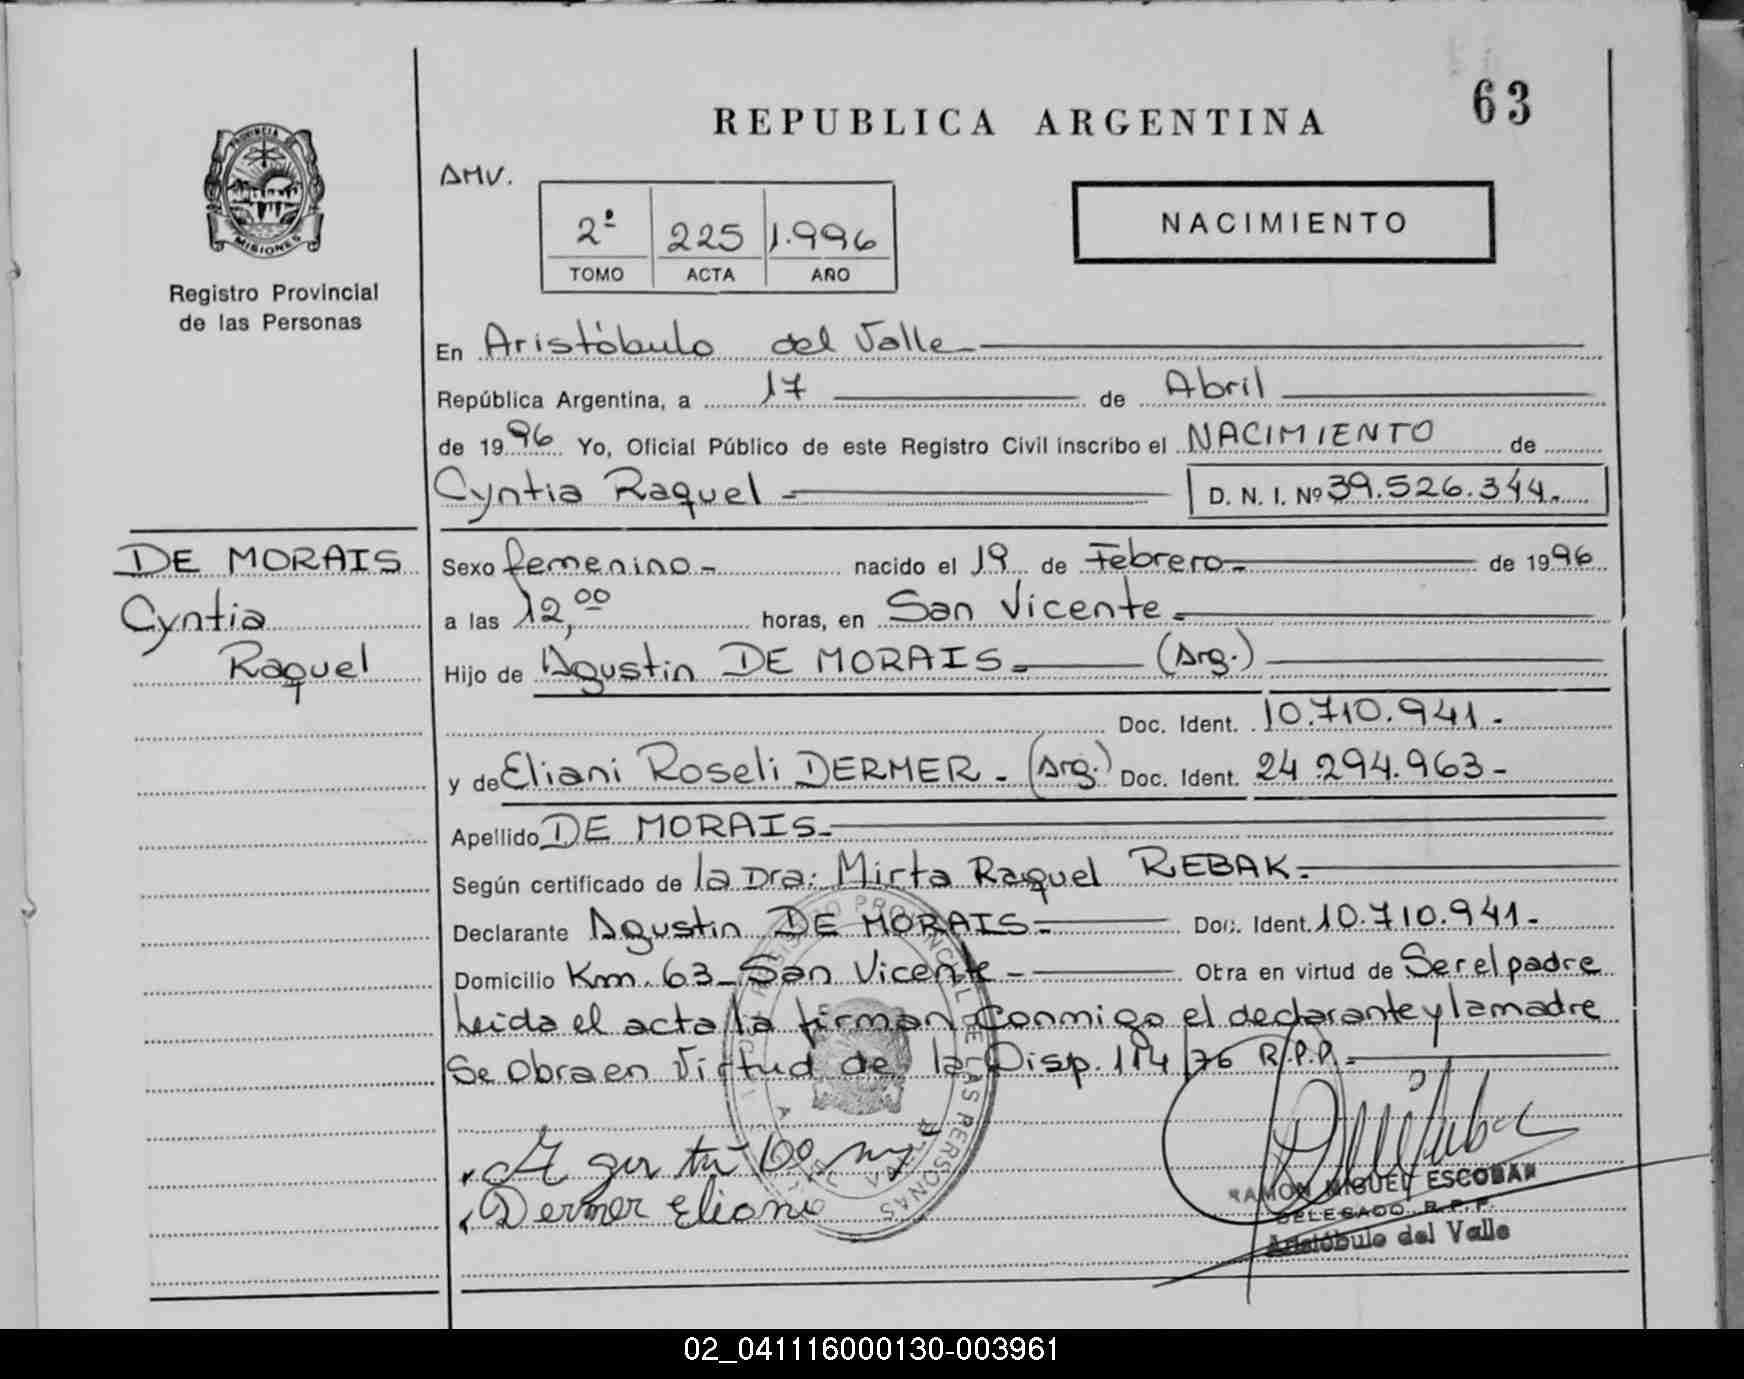 63
REPUBLICA ARGENTINA
AMV.
PROVINCIA DE
MISIONES
Registro Provincial
de las Personas
2º 225 1.996
TOMO ACTA AÑO
NACIMIENTO
En Aristóbulo del Valle
República Argentina, a 17 de Abril
de 1996 Yo, Oficial Público de este Registro Civil inscribo el NACIMIENTO de
Cyntia Raquel - D. N. I. Nº 39.526.344.-
DE MORAIS
Cyntia
Raquel
Sexo femenino - nacido el 19 de Febrero - de 1996
a las 12,00 horas, en San Vicente -
Hijo de Agustin DE MORAIS - (Arg.)
Doc. Ident. 10.710.941 -
y de Eliani Roseli DERMER - (Arg.) Doc. Ident. 24.294.963 -
Apellido DE MORAIS -
Según certificado de la Dra: Mirta Raquel REBAK -
Declarante Agustin DE MORAIS - Doc. Ident. 10.710.941 -
Domicilio Km. 63 - San Vicente - Obra en virtud de Ser el padre
Leida el acta la firman Conmigo el declarante y la madre
Se Obra en Virtud de la Disp. 114/76 R.P.P. -
Dermer Eliani
RAMON MIGUEL ESCOBAR
DELEGADO R.P.P.
Aristóbulo del Valle
02_041116000130-003961